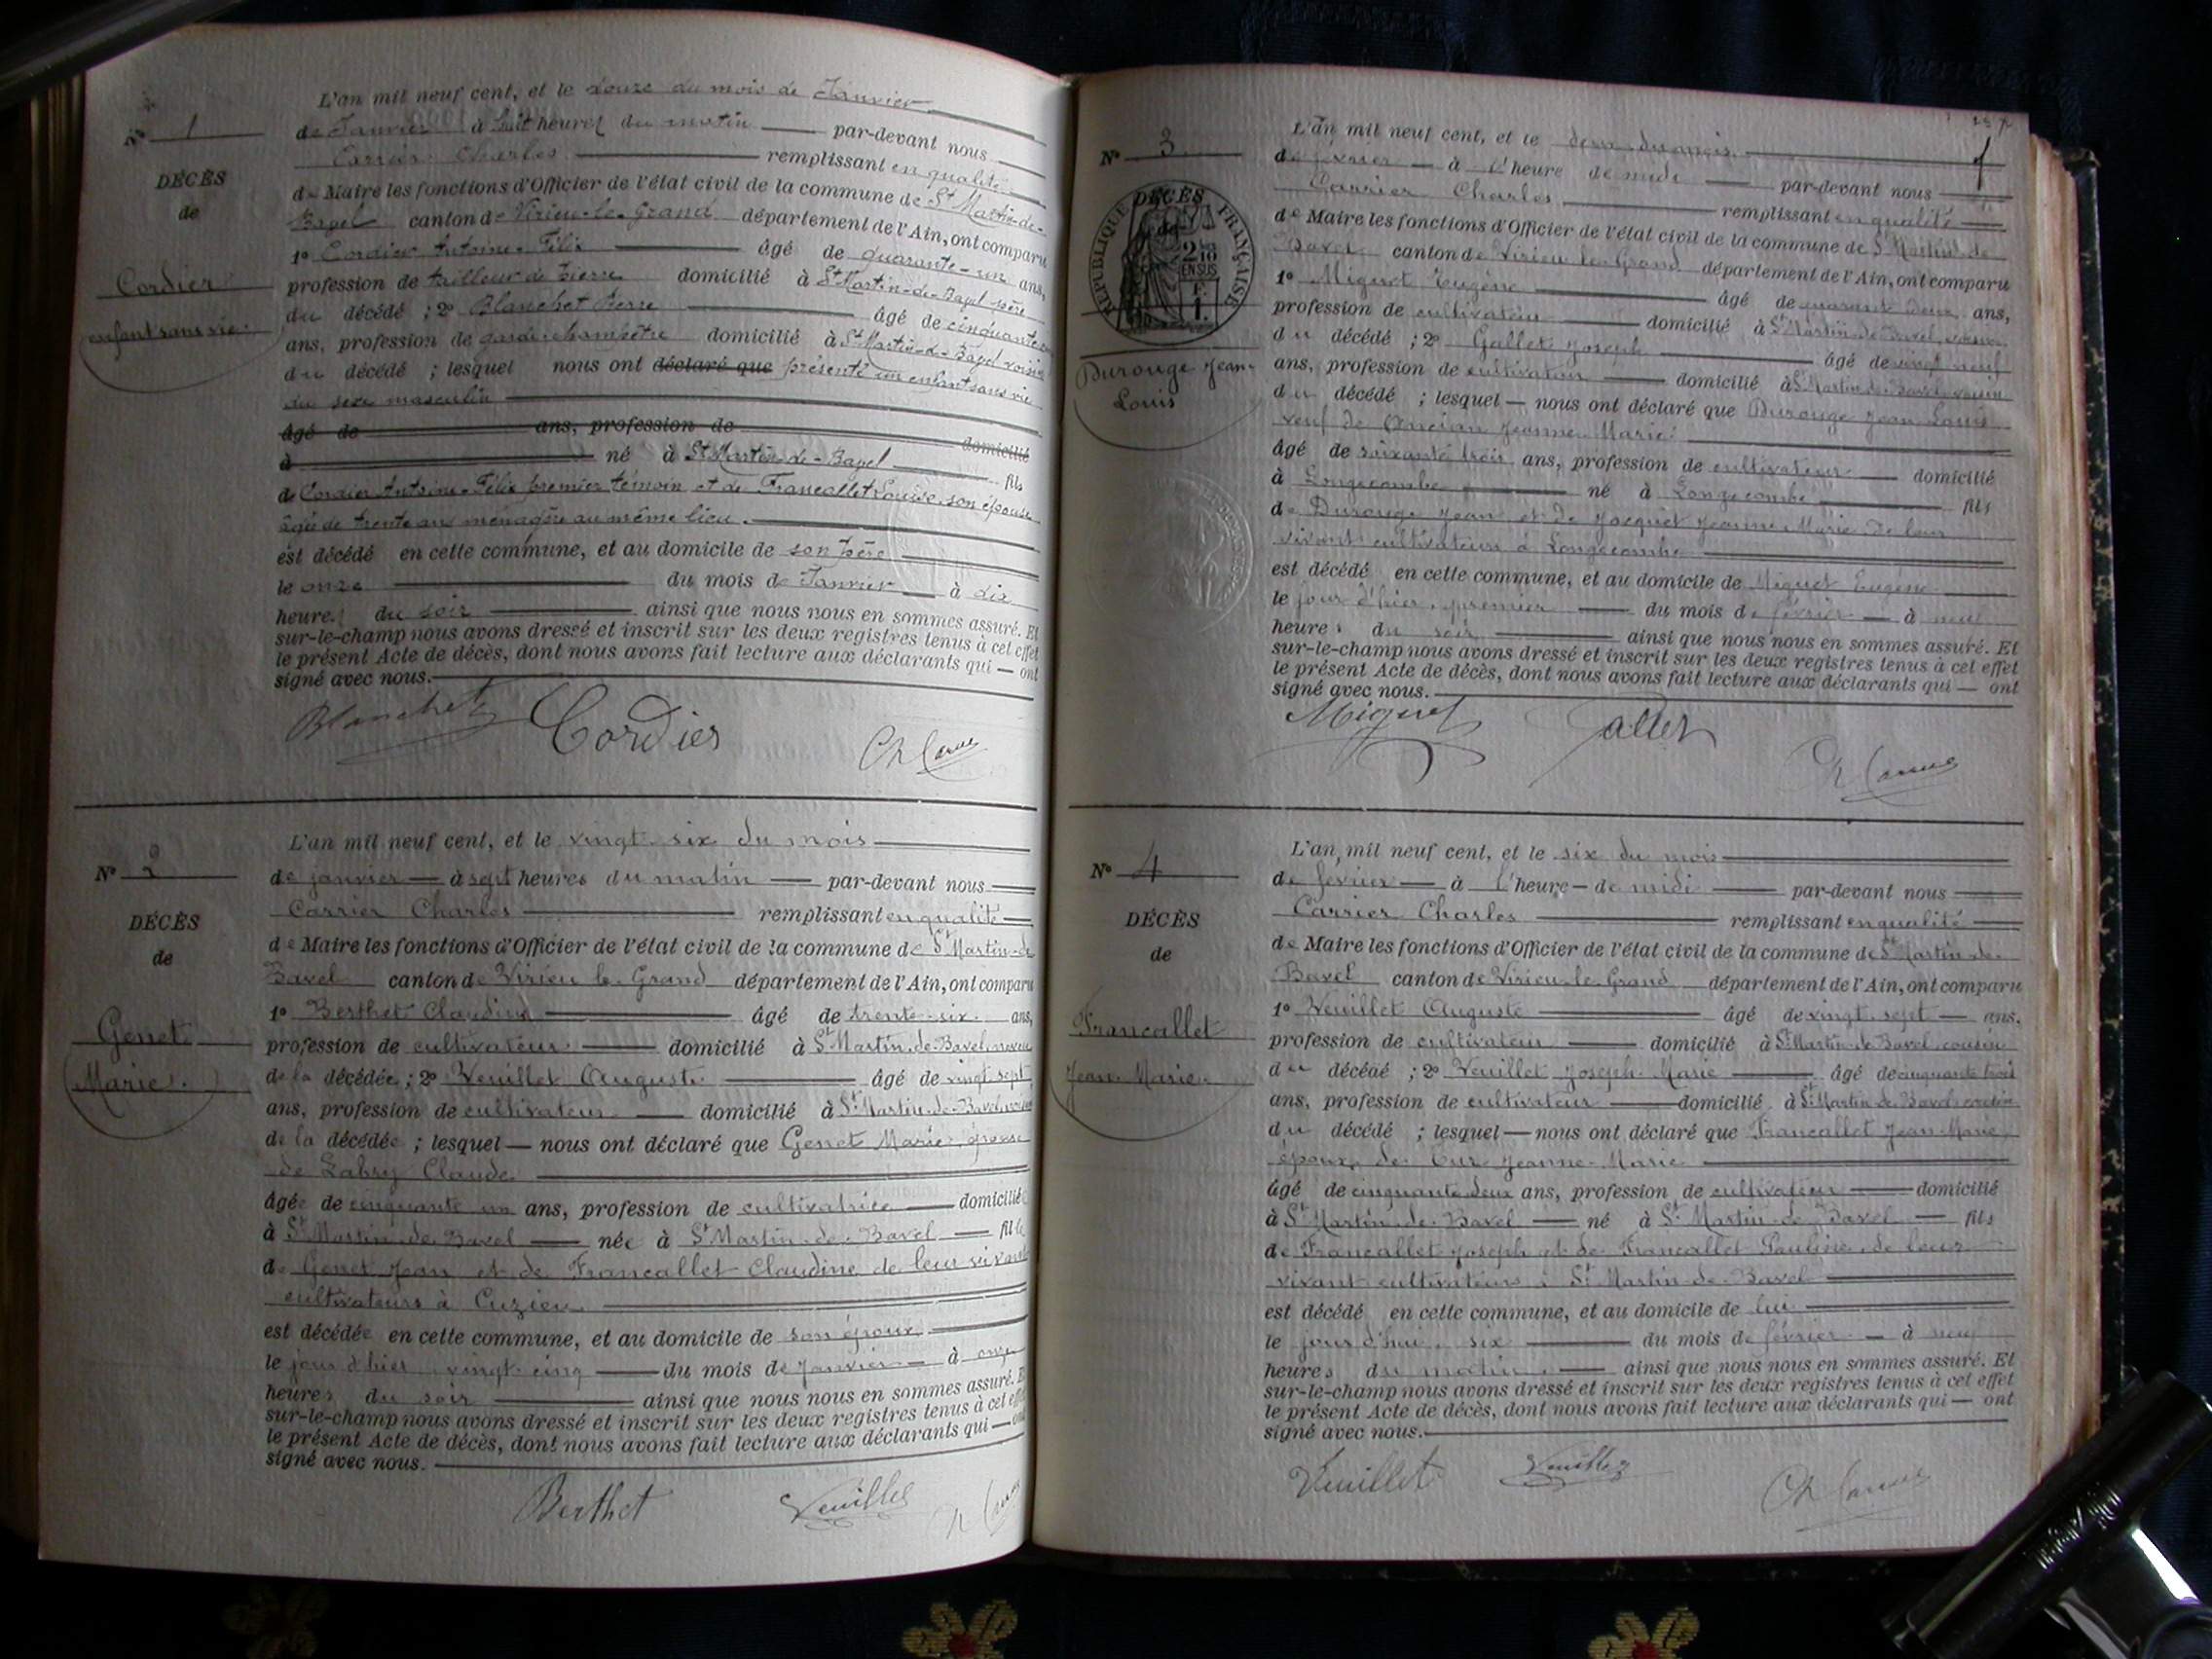 N° 1
DÉCÈS
de
Cordier
enfant sans vie.
L'an mil neuf cent, et le douze du mois de Janvier
de Janvier à huit heures du matin par-devant nous
Carrier Charles remplissant en qualité
de Maire les fonctions d'Officier de l'état civil de la commune de St Martin-de-
Bavel canton de Virieu-le-Grand département de l'Ain, ont comparu
1° Cordier Antoine-Félix âgé de quarante-un ans,
profession de tailleur de pierre domicilié à St Martin-de-Bavel père
du décédé ; 2° Blanchet Pierre âgé de cinquante
ans, profession de garde-champêtre domicilié à St Martin-de-Bavel voisin
du décédé ; lesquel nous ont déclaré que présenté un enfant sans vie
du sexe masculin
âgé de ans, profession de domicilié
à né à St Martin-de-Bavel fils
de Cordier Antoine-Félix premier témoin et de Francallet Louise son épouse
âgée de trente ans ménagère au même lieu.
est décédé en cette commune, et au domicile de son père
le onze du mois de Janvier à dix
heures du soir ainsi que nous nous en sommes assuré. Et
sur-le-champ nous avons dressé et inscrit sur les deux registres tenus à cet effet
le présent Acte de décès, dont nous avons fait lecture aux déclarants qui — ont
signé avec nous.
Blanchet Cordier
N° 2
DÉCÈS
de
Genet
Marie.
L'an mil neuf cent, et le vingt six du mois
de janvier à sept heures du matin par-devant nous
Carrier Charles remplissant en qualité
de Maire les fonctions d'Officier de l'état civil de la commune de St Martin-de
Bavel canton de Virieu le Grand département de l'Ain, ont comparu
1° Berthet Claudius âgé de trente-six ans,
profession de cultivateur domicilié à St Martin-de-Bavel, neveu
de la décédée ; 2° Veuillet Auguste âgé de vingt sept
ans, profession de cultivateur domicilié à St Martin-de-Bavel, voisin
de la décédée ; lesquel — nous ont déclaré que Genet Marie, épouse
de Labry Claude
âgée de cinquante un ans, profession de cultivatrice domiciliée
à St Martin de Bavel née à St Martin-de-Bavel fille
de Genet Jean et de Francallet Claudine de leur vivant
cultivateurs à Cuzieu
est décédée en cette commune, et au domicile de son époux
le jour d'hier vingt-cinq du mois de janvier à onze
heures du soir ainsi que nous nous en sommes assuré. Et
sur-le-champ nous avons dressé et inscrit sur les deux registres tenus à cet effet
le présent Acte de décès, dont nous avons fait lecture aux déclarants qui — ont
signé avec nous.
Berthet Veuillet
N° 3
DÉCÈS
de
RÉPUBLIQUE FRANÇAISE
2/10
EN SUS
Durouge Jean-
Louis
L'an mil neuf cent, et le deux du mois
de février à l'heure de midi par-devant nous
Carrier Charles remplissant en qualité
de Maire les fonctions d'Officier de l'état civil de la commune de St Martin-de
Bavel canton de Virieu le Grand département de l'Ain, ont comparu
1° Miguet Eugène âgé de quarante deux ans,
profession de cultivateur domicilié à St Martin-de-Bavel, voisin
du décédé ; 2° Gallet Joseph âgé de vingt neuf
ans, profession de cultivateur domicilié à St Martin-de-Bavel voisin
du décédé ; lesquel — nous ont déclaré que Durouge Jean-Louis
veuf de Ancian Jeanne-Marie
âgé de soixante trois ans, profession de cultivateur domicilié
à Longecombe né à Longecombe fils
de Durouge Jean et de Jacquet Jeanne-Marie de leur
vivant cultivateurs à Longecombe
est décédé en cette commune, et au domicile de Miguet Eugène
le jour d'hier, premier du mois de février à neuf
heures du soir ainsi que nous nous en sommes assuré. Et
sur-le-champ nous avons dressé et inscrit sur les deux registres tenus à cet effet
le présent Acte de décès, dont nous avons fait lecture aux déclarants qui — ont
signé avec nous.
Miguet Gallet
N° 4
DÉCÈS
de
Francallet
Jean-Marie.
L'an mil neuf cent, et le six du mois
de février à l'heure de midi par-devant nous
Carrier Charles remplissant en qualité
de Maire les fonctions d'Officier de l'état civil de la commune de St Martin-de-
Bavel canton de Virieu-le-Grand département de l'Ain, ont comparu
1° Veuillet Auguste âgé de vingt-sept ans.
profession de cultivateur domicilié à St Martin-de-Bavel, cousin
du décédé ; 2° Veuillet Joseph-Marie âgé de cinquante trois
ans, profession de cultivateur domicilié à St Martin-de-Bavel, cousin
du décédé ; lesquel — nous ont déclaré que Francallet Jean-Marie,
époux de Jeanne-Marie
âgé de cinquante deux ans, profession de cultivateur domicilié
à St Martin-de-Bavel né à St Martin-de-Bavel fils
de Francallet Joseph et de Francallet Pauline, de leur
vivant cultivateurs à St Martin-de-Bavel
est décédé en cette commune, et au domicile de lui
le jour d'hui, six du mois de février à neuf
heures du matin ainsi que nous nous en sommes assuré. Et
sur-le-champ nous avons dressé et inscrit sur les deux registres tenus à cet effet
le présent Acte de décès, dont nous avons fait lecture aux déclarants qui — ont
signé avec nous.
Veuillet Veuillet